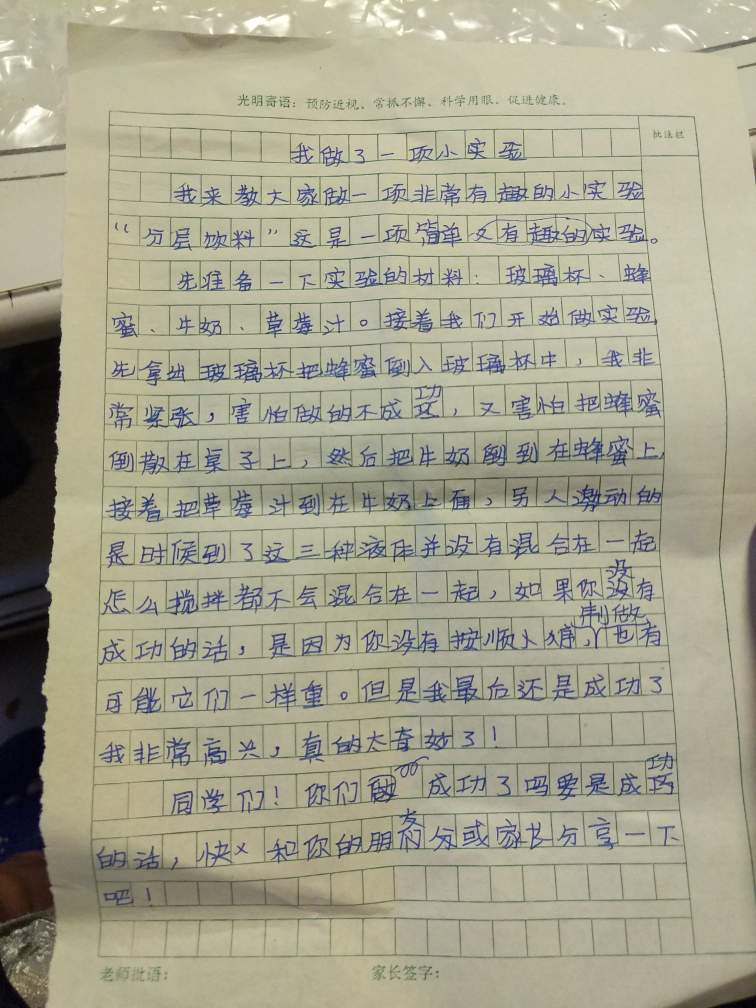 光明寄语：预防近视、常抓不懈、科学用眼、促进健康。
批注栏
我做了一项小实验
我来教大家做一项非常有趣的小实验
“分层饮料”这是一项简单又有趣的实验。
先准备一下实验的材料：玻璃杯、蜂
蜜、牛奶、草莓汁。接着我们开始做实验，
先拿出玻璃杯把蜂蜜倒入玻璃杯中，我非
常紧张，害怕做的不成功，又害怕把蜂蜜
倒散在桌子上，然后把牛奶倒到在蜂蜜上，
接着把草莓汁到在牛奶上面，另人激动的
是时候到了这三种液体并没有混合在一起
怎么搅拌都不会混合在一起，如果你没有
成功的话，是因为你没有按顺序制做，也有
可能它们一样重。但是我最后还是成功了
我非常高兴，真的太奇妙了！
同学们！你们做成功了吗要是成功
的话，快和你的朋友分或家长分享一下
吧！
老师批语：
家长签字：